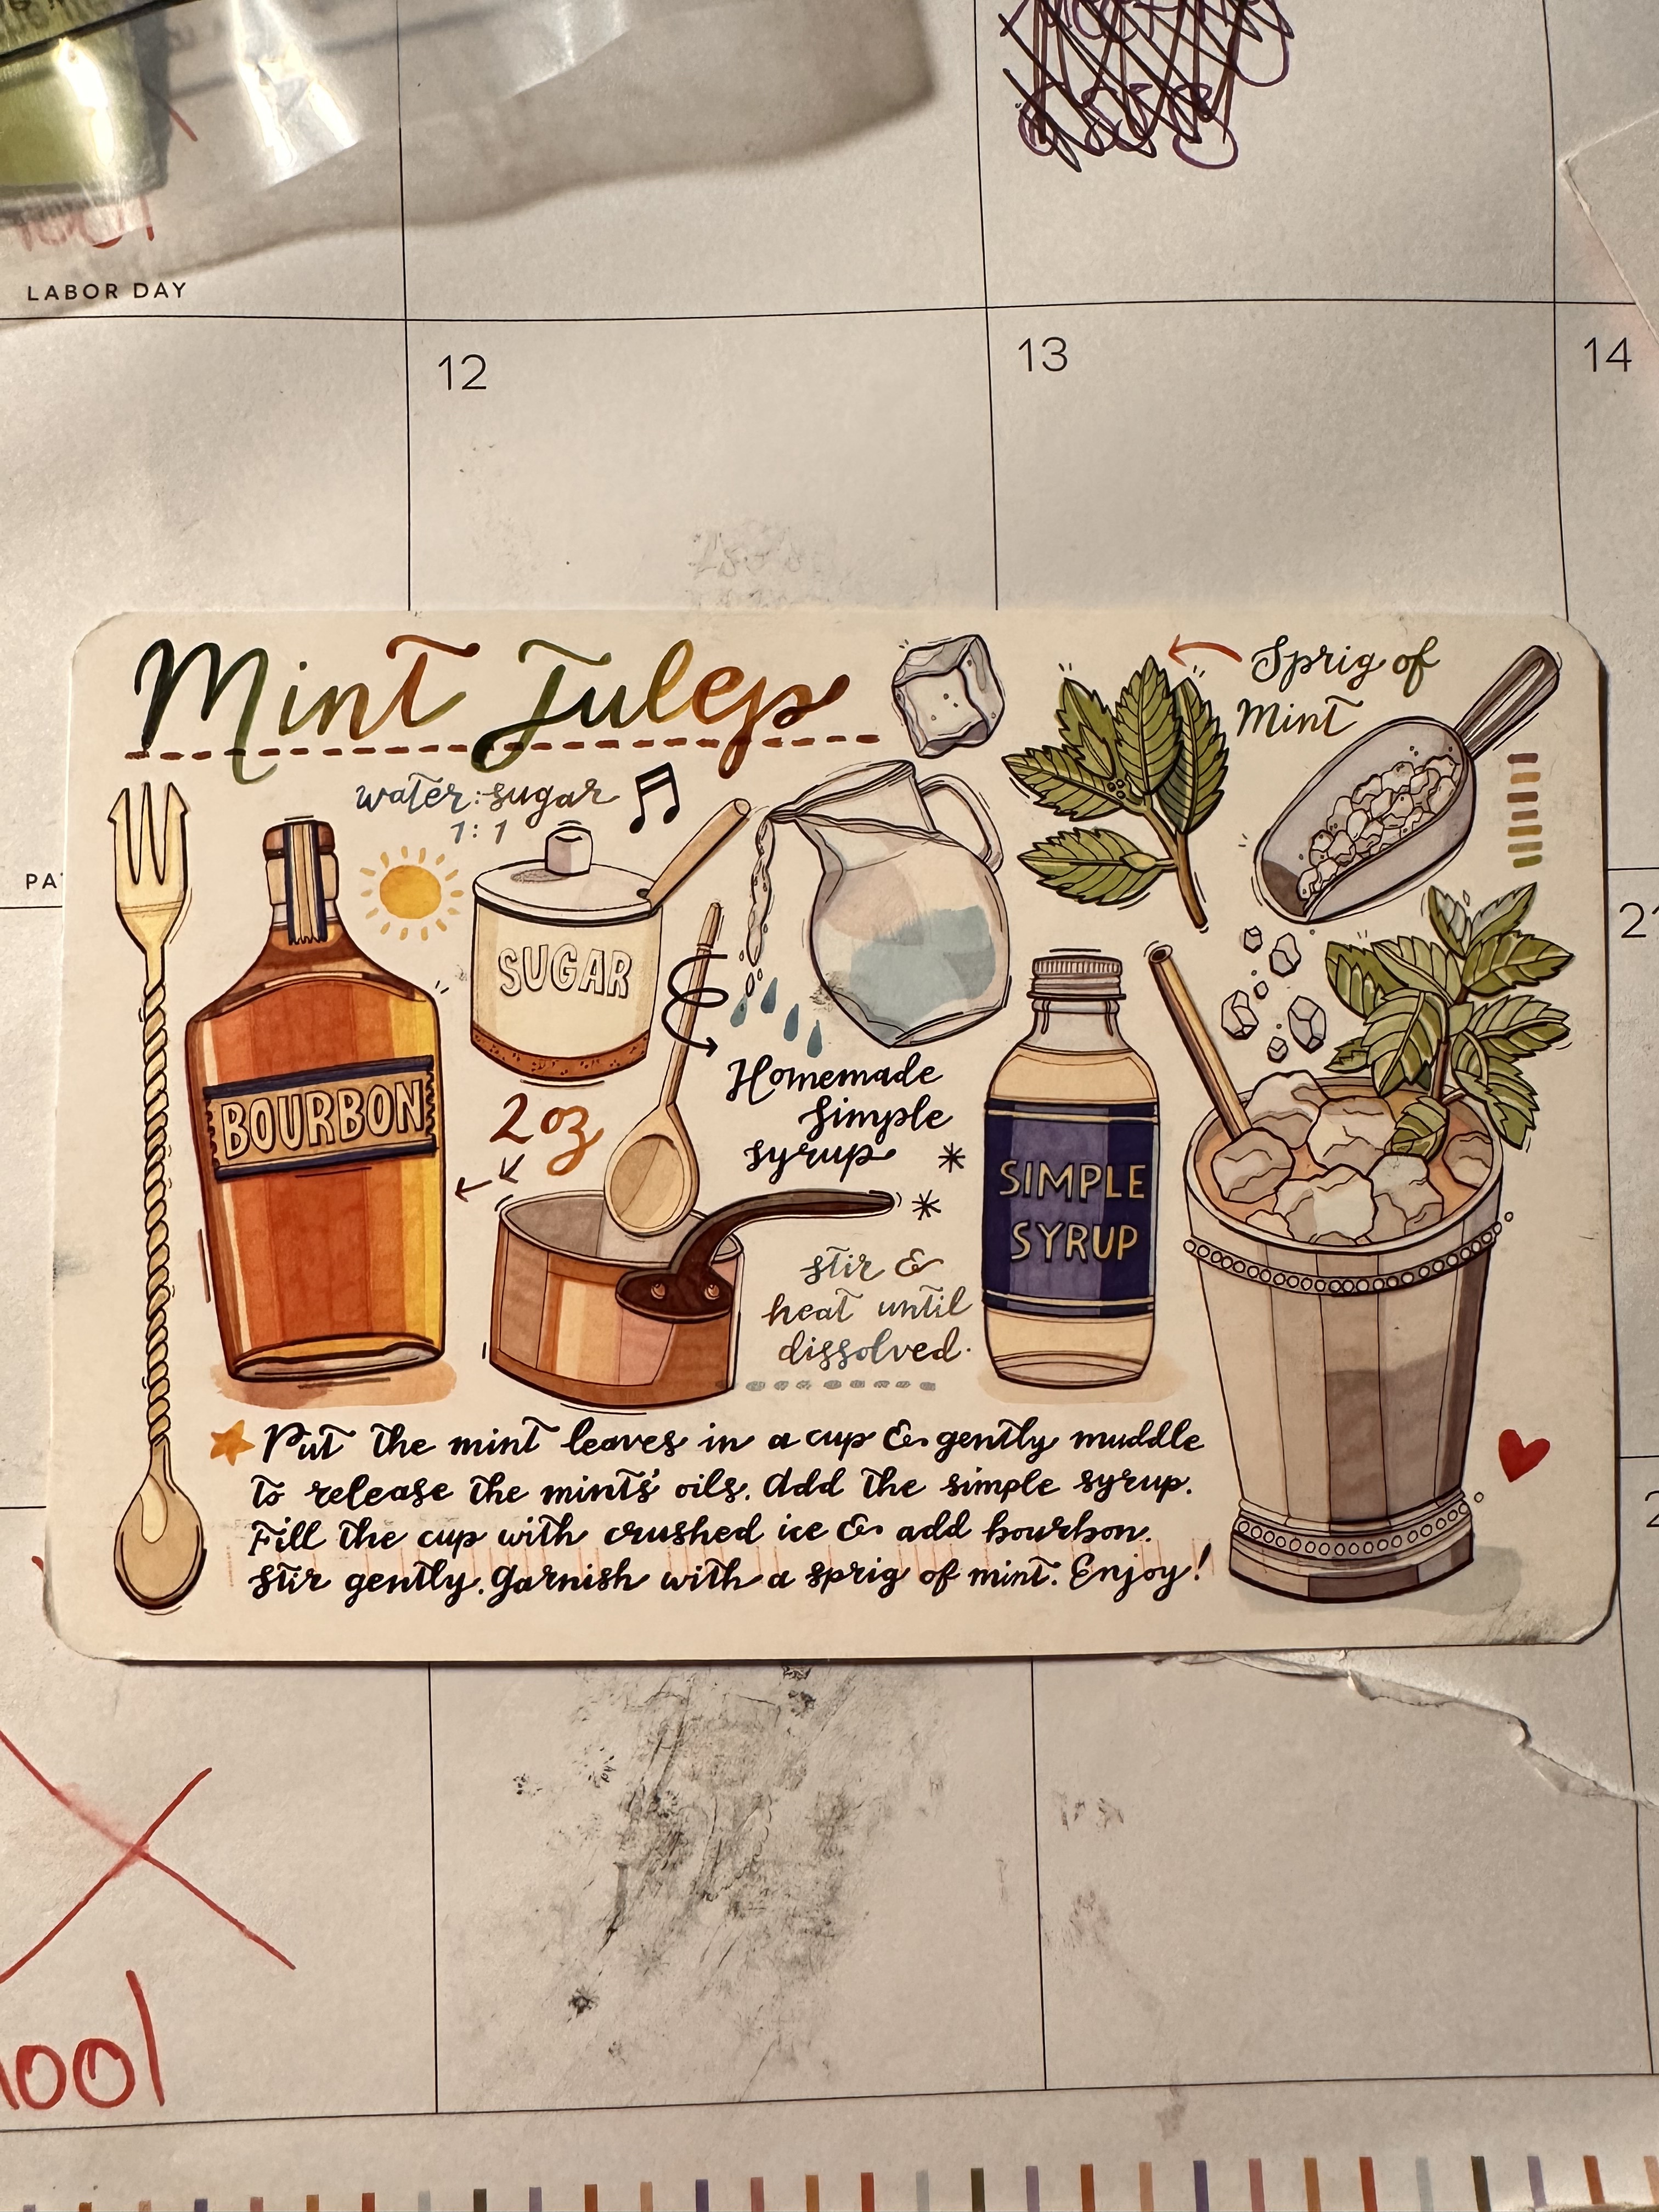 LABOR DAY
12
13
14
Mint Julep
Sprig of
Mint
water:sugar
1:1
SUGAR
BOURBON
2 oz
Homemade
simple
syrup
SIMPLE
SYRUP
stir &
heat until
dissolved.
Put the mint leaves in a cup & gently muddle
to release the mints' oils. Add the simple syrup.
Fill the cup with crushed ice & add bourbon.
Stir gently. Garnish with a sprig of mint. Enjoy!